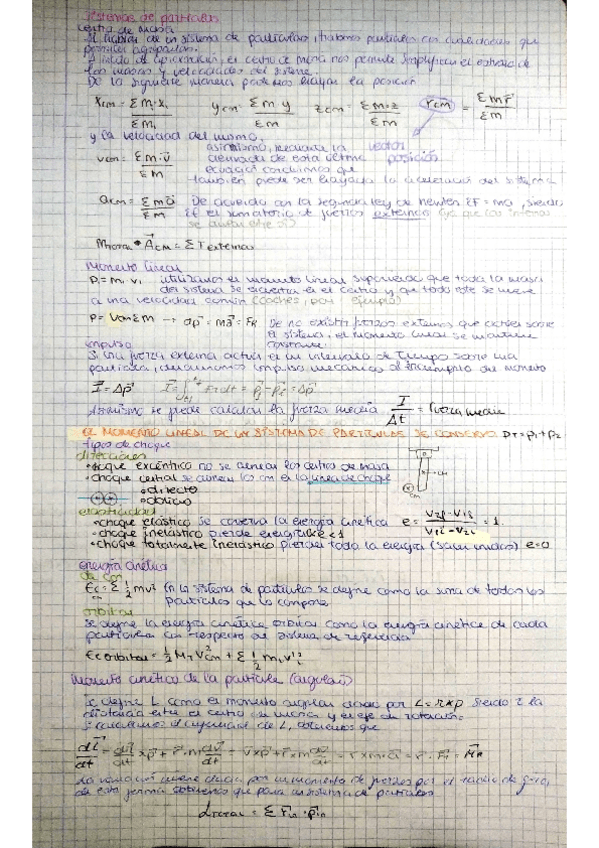 Sistemas de partículas
centro de masa
Si hablas de un sistema de partículas, tratamos partículas con cualidades que
permiten agruparlas.
de aproximación, el centro de masa nos permite simplificar el estudio de
las masas y velocidades del sistema.
De la siguiente manera podemos hallar la posición
Xcm = Σ m₁·x₁ / Σ m₁ ycm = Σ m y / Σ m zcm = Σ m·z / Σ m rcm = Σ m r⃗ / Σ m
y la velocidad del mismo,
asimismo, mediante la vector
vcm = Σ m·v⃗ / Σ m derivada de esta última posición
ecuación
también puede ser hallada la aceleración del sistema
acm = Σ m a⃗ / Σ m De acuerdo con la segunda ley de newton ΣF = ma, siendo
ΣF el sumatorio de fuerzas externas (ya que las internas
se anulan entre sí)
Mtotal * A⃗cm = Σ F externas
Momento lineal
P₁ = m₁ v₁ utilizamos el momento lineal suponiendo que toda la masa
del sistema se encuentra en el centro y que todo este se mueve
a una velocidad común (coches, por ejemplo)
P = Vcm Σ m → dp⃗ = ma⃗ = FR De no existir fuerzas externas que actúen sobre
el sistema, el momento lineal se mantiene
constante.
impulso
Si una fuerza externa actúa en un intervalo de tiempo sobre una
partícula, impulso mecánico al del momento
I⃗ = Δp⃗ I⃗ = ∫ F dt = p⃗f - p⃗i = Δp⃗
Asimismo se puede calcular la fuerza media I / Δt = Fuerza media
EL MOMENTO LINEAL DE UN SISTEMA DE PARTÍCULAS SE CONSERVA PT = p₁ + p₂
tipos de choque
direcciones
• choque excéntrico no se alinean los centros de masa
• choque central se alinean los cm en la línea de choque
• directo
• oblicuo
CM
CM
elasticidad
• choque elástico se conserva la energía cinética e = V2f - V1f / V1i - V2i = 1
• choque inelástico pierde energía e < 1
• choque totalmente inelástico pierden toda la energía (salen unidos) e=0
energía cinética
de cm
Ec = Σ ½ mv² En la sistema de partículas se define como la suma de todas las
partículas que lo componen
orbital
Se define la energía cinética orbital como la energía cinética de cada
partícula con respecto al sistema de referencia
Ec orbital = ½ MT V²cm + Σ ½ m₁ v₁'²
Momento cinético de la partícula (angular)
Se define L como el momento angular dado por L = r x p siendo r la
distancia entre el centro de masa y el eje de rotación.
Si calculamos el de L, obtenemos que
dL⃗/dt = dr⃗/dt x p⃗ + r⃗·m dv⃗/dt = v⃗ x p⃗ + r⃗ x m dv⃗/dt = r x m·a⃗ = r·F⃗ = M⃗
La variación viene dada por un momento de fuerzas por el radio de giro,
de esta forma obtenemos que para un sistema de partículas
Ltotal = Σ